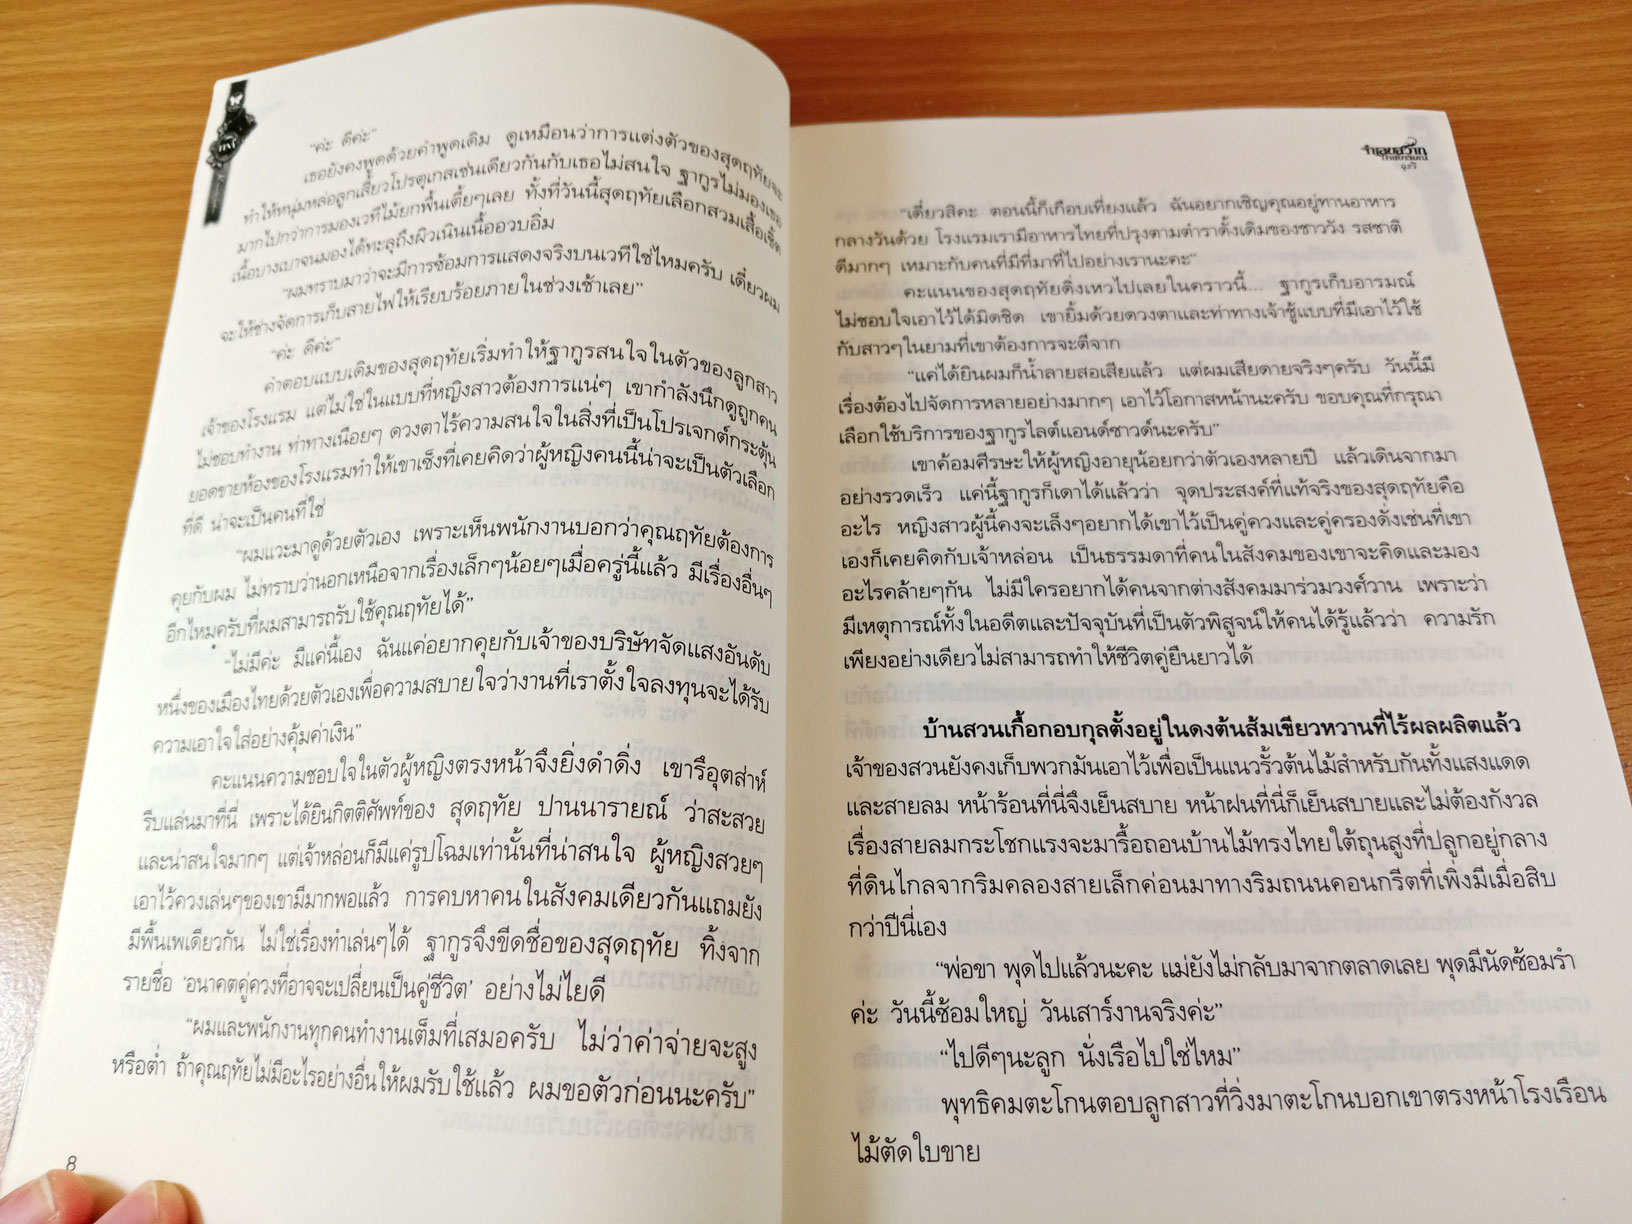 "ค่ะ ดีค่ะ"
เธอยังคงพูดด้วยคำพูดเดิม ดูเหมือนว่าการแต่งตัวของสุดฤทัยจะ
ทำให้หนุ่มหล่อลูกเสี้ยวโปรตุเกสเช่นเดียวกันกับเธอไม่สนใจ ฐากูรไม่มองเธอ
มากไปกว่าการมองเวทีไม้ยกพื้นเตี้ยๆเลย ทั้งที่วันนี้สุดฤทัยเลือกสวมเสื้อเชิ้ต
เนื้อบางเบาจนมองได้ทะลุถึงผิวเนินเนื้ออวบอิ่ม
"ผมทราบมาว่าจะมีการซ้อมการแสดงจริงบนเวทีใช่ไหมครับ เดี๋ยวผม
จะให้ช่างจัดการเก็บสายไฟให้เรียบร้อยภายในช่วงเช้าเลย"
"ค่ะ ดีค่ะ"
คำตอบแบบเดิมของสุดฤทัยเริ่มทำให้ฐากูรสนใจในตัวของลูกสาว
เจ้าของโรงแรม แต่ไม่ใช่ในแบบที่หญิงสาวต้องการแน่ๆ เขากำลังนึกดูถูกคน
ไม่ชอบทำงาน ท่าทางเนือยๆ ดวงตาไร้ความสนใจในสิ่งที่เป็นโปรเจกต์กระตุ้น
ยอดขายห้องของโรงแรมทำให้เขาเซ็งที่เคยคิดว่าผู้หญิงคนนี้น่าจะเป็นตัวเลือก
ที่ดี น่าจะเป็นคนที่ใช่
"ผมแวะมาดูด้วยตัวเอง เพราะเห็นพนักงานบอกว่าคุณฤทัยต้องการ
คุยกับผม ไม่ทราบว่านอกเหนือจากเรื่องเล็กๆน้อยๆเมื่อครู่นี้แล้ว มีเรื่องอื่นๆ
อีกไหมครับที่ผมสามารถรับใช้คุณฤทัยได้"
"ไม่มีค่ะ มีแค่นี้เอง ฉันแค่อยากคุยกับเจ้าของบริษัทจัดแสงอันดับ
หนึ่งของเมืองไทยด้วยตัวเองเพื่อความสบายใจว่างานที่เราตั้งใจลงทุนจะได้รับ
ความเอาใจใส่อย่างคุ้มค่าเงิน"
คะแนนความชอบใจในตัวผู้หญิงตรงหน้าจึงยิ่งดำดิ่ง เขารึอุตส่าห์
รีบแล่นมาที่นี่ เพราะได้ยินกิตติศัพท์ของ สุดฤทัย ปานนารายณ์ ว่าสะสวย
และน่าสนใจมากๆ แต่เจ้าหล่อนก็มีแค่รูปโฉมเท่านั้นที่น่าสนใจ ผู้หญิงสวยๆ
เอาไว้ควงเล่นๆของเขามีมากพอแล้ว การคบหาคนในสังคมเดียวกันแถมยัง
มีพื้นเพเดียวกัน ไม่ใช่เรื่องทำเล่นๆได้ ฐากูรจึงขีดชื่อของสุดฤทัย ทิ้งจาก
รายชื่อ 'อนาคตคู่ควงที่อาจจะเปลี่ยนเป็นคู่ชีวิต' อย่างไม่ไยดี
"ผมและพนักงานทุกคนทำงานเต็มที่เสมอครับ ไม่ว่าค่าจ่ายจะสูง
หรือต่ำ ถ้าคุณฤทัยไม่มีอะไรอย่างอื่นให้ผมรับใช้แล้ว ผมขอตัวก่อนนะครับ"
8
"เดี๋ยวสิคะ ตอนนี้ก็เกือบเที่ยงแล้ว ฉันอยากเชิญคุณอยู่ทานอาหาร
กลางวันด้วย โรงแรมเรามีอาหารไทยที่ปรุงตามตำราดั้งเดิมของชาววัง รสชาติ
ดีมากๆ เหมาะกับคนที่มีที่มาที่ไปอย่างเรานะคะ"
คะแนนของสุดฤทัยดิ่งเหวไปเลยในคราวนี้... ฐากูรเก็บอารมณ์
ไม่ชอบใจเอาไว้ได้มิดชิด เขายิ้มด้วยดวงตาและท่าทางเจ้าชู้แบบที่มีเอาไว้ใช้
กับสาวๆในยามที่เขาต้องการจะตีจาก
"แค่ได้ยินผมก็น้ำลายสอเสียแล้ว แต่ผมเสียดายจริงๆครับ วันนี้มี
เรื่องต้องไปจัดการหลายอย่างมากๆ เอาไว้โอกาสหน้านะครับ ขอบคุณที่กรุณา
เลือกใช้บริการของฐากูรไลต์แอนด์ซาวด์นะครับ"
เขาค้อมศีรษะให้ผู้หญิงอายุน้อยกว่าตัวเองหลายปี แล้วเดินจากมา
อย่างรวดเร็ว แค่นี้ฐากูรก็เดาได้แล้วว่า จุดประสงค์ที่แท้จริงของสุดฤทัยคือ
อะไร หญิงสาวผู้นี้คงจะเล็งๆอยากได้เขาไว้เป็นคู่ควงและคู่ครองดั่งเช่นที่เขา
เองก็เคยคิดกับเจ้าหล่อน เป็นธรรมดาที่คนในสังคมของเขาจะคิดและมอง
อะไรคล้ายๆกัน ไม่มีใครอยากได้คนจากต่างสังคมมาร่วมวงศ์วาน เพราะว่า
มีเหตุการณ์ทั้งในอดีตและปัจจุบันที่เป็นตัวพิสูจน์ให้คนได้รู้แล้วว่า ความรัก
เพียงอย่างเดียวไม่สามารถทำให้ชีวิตคู่ยืนยาวได้
บ้านสวนเกื้อกอบกุลตั้งอยู่ในดงต้นส้มเขียวหวานที่ไร้ผลผลิตแล้ว
เจ้าของสวนยังคงเก็บพวกมันเอาไว้เพื่อเป็นแนวรั้วต้นไม้สำหรับกันทั้งแสงแดด
และสายลม หน้าร้อนที่นี่จึงเย็นสบาย หน้าฝนที่นี่ก็เย็นสบายและไม่ต้องกังวล
เรื่องสายลมกระโชกแรงจะมารื้อถอนบ้านไม้ทรงไทยใต้ถุนสูงที่ปลูกอยู่กลาง
ที่ดินไกลจากริมคลองสายเล็กค่อนมาทางริมถนนคอนกรีตที่เพิ่งมีเมื่อสิบ
กว่าปีนี่เอง
"พ่อขา พุดไปแล้วนะคะ แม่ยังไม่กลับมาจากตลาดเลย พุดมีนัดซ้อมรำ
ค่ะ วันนี้ซ้อมใหญ่ วันเสาร์งานจริงค่ะ"
"ไปดีๆนะลูก นั่งเรือไปใช่ไหม"
พุทธิคมตะโกนตอบลูกสาวที่วิ่งมาตะโกนบอกเขาตรงหน้าโรงเรือน
ไม้ตัดใบขาย